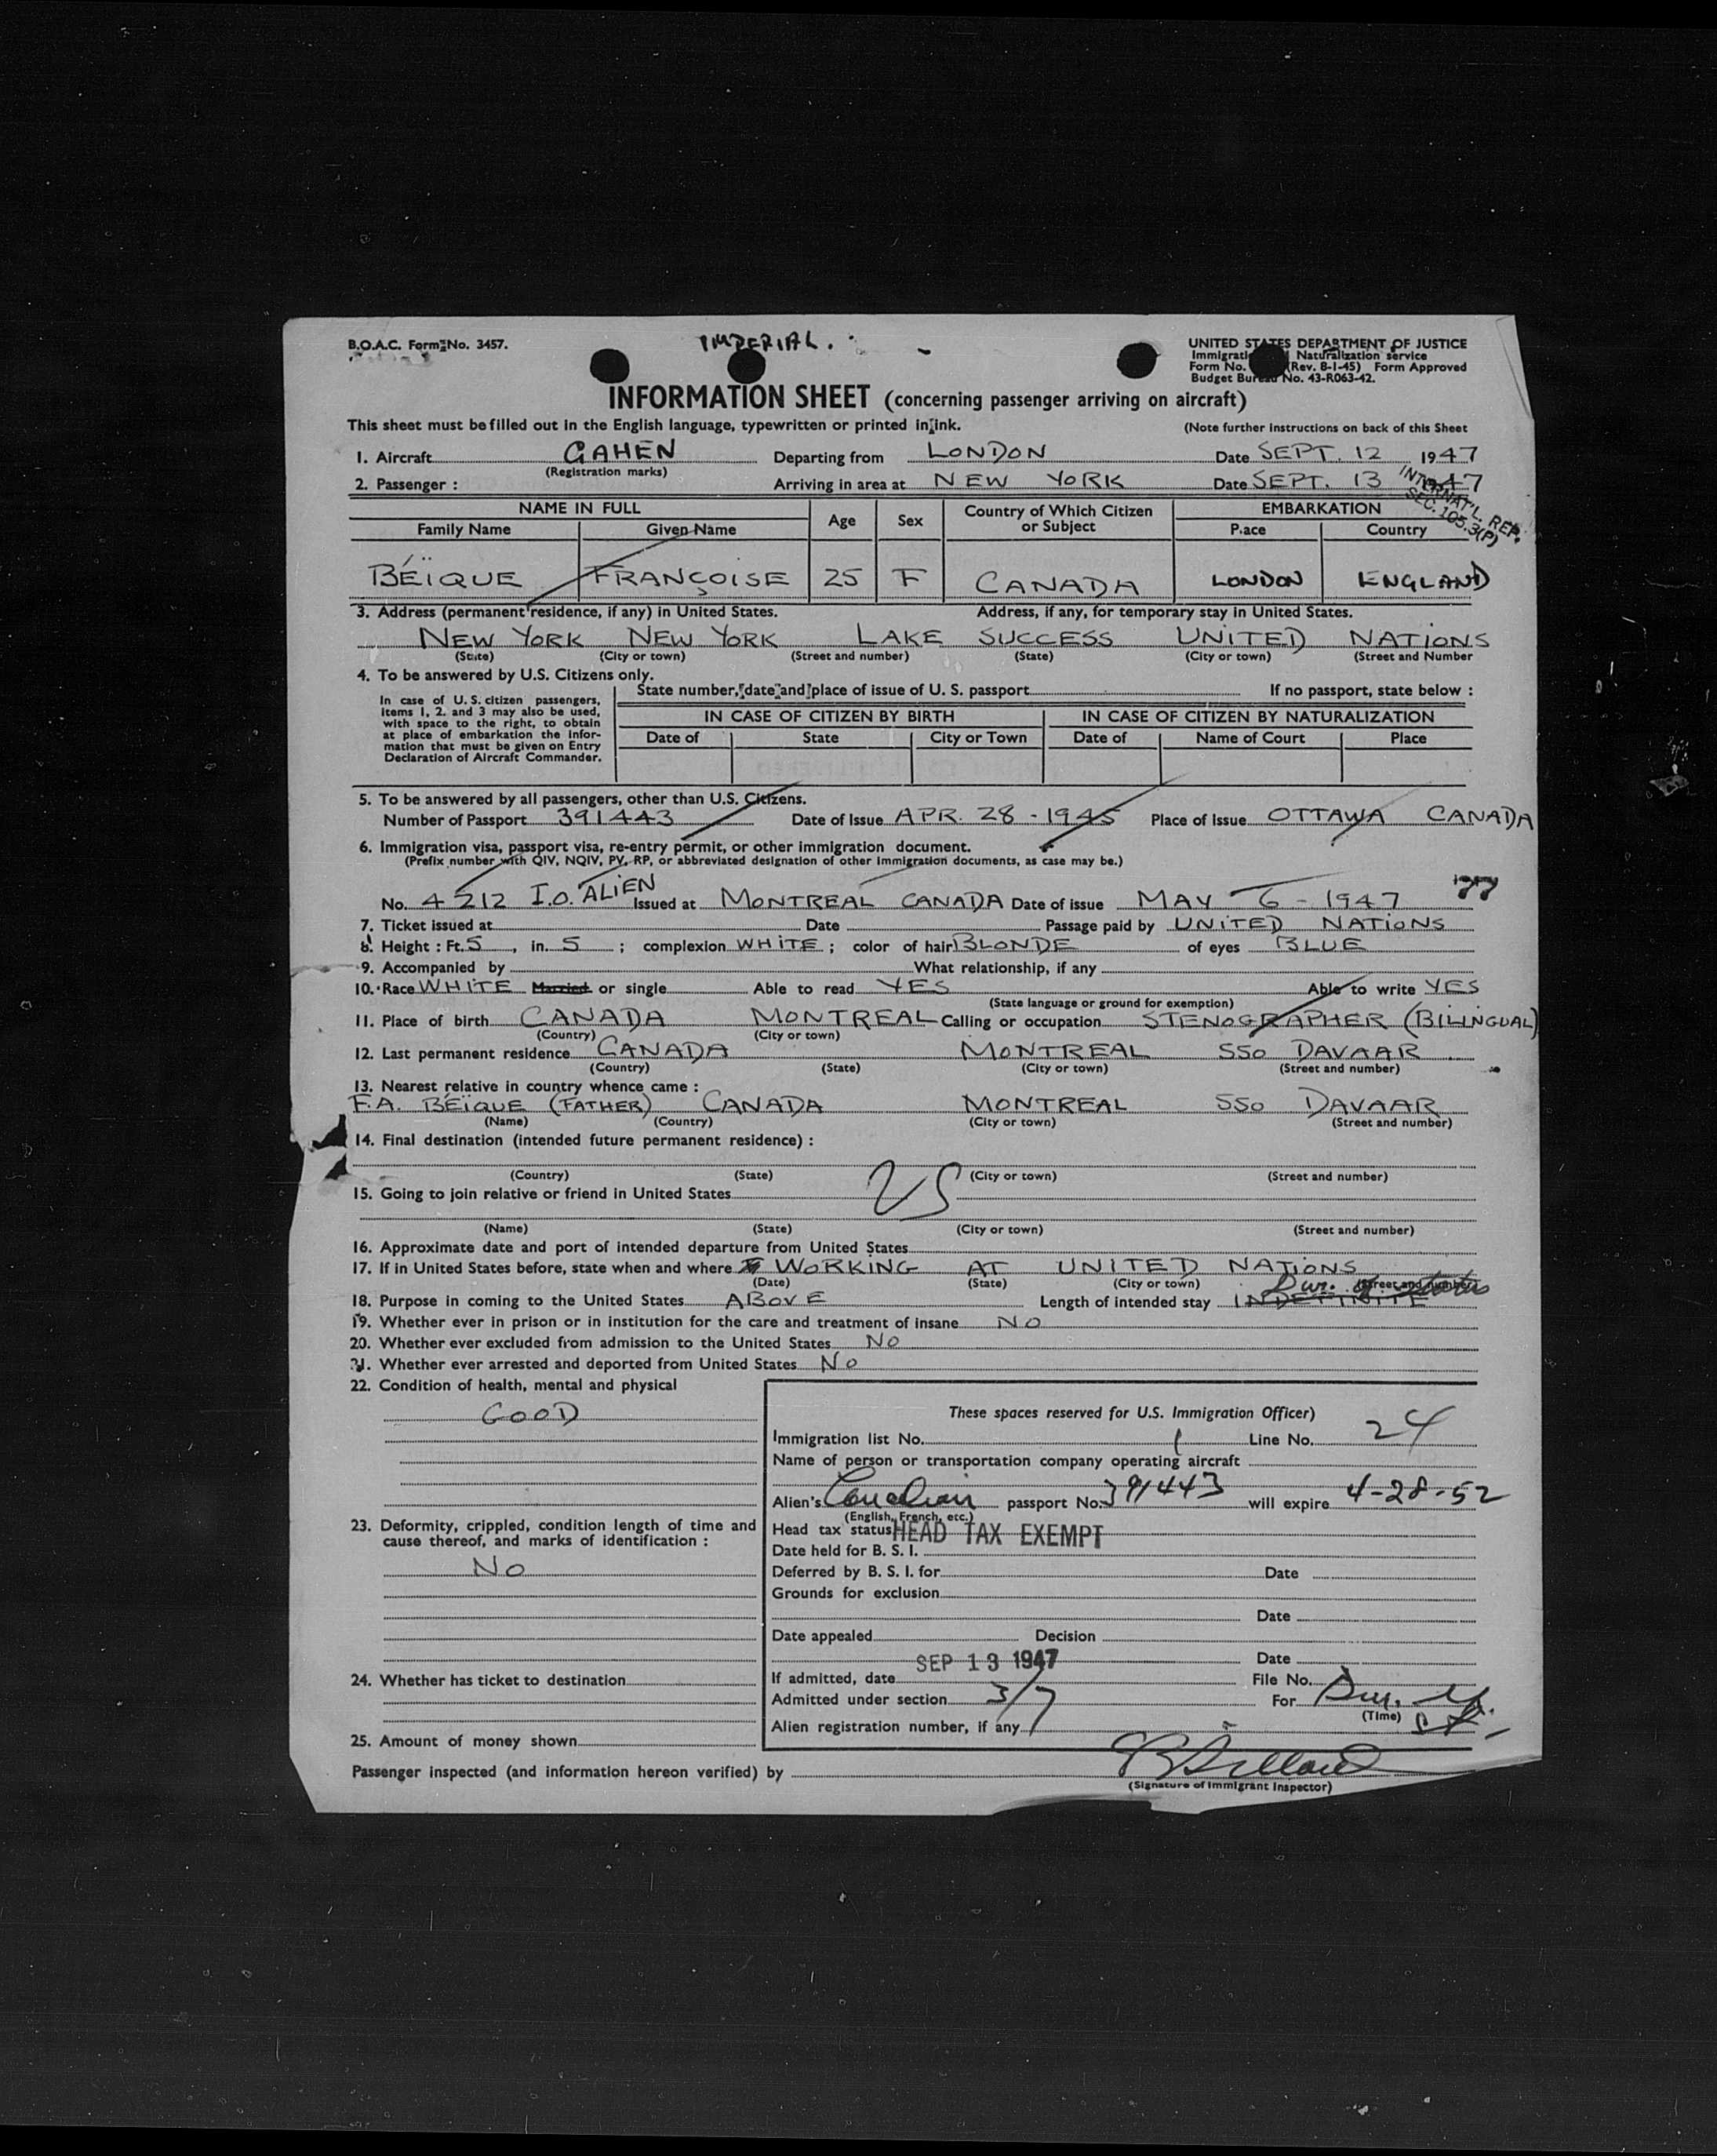 B.O.A.C. Form No. 3457.
IMPERIAL.
UNITED STATES DEPARTMENT OF JUSTICE
Immigrati Naturalization service
Form No. (Rev. 8-1-45) Form Approved
Budget Bureau No. 43-R063-42.
INFORMATION SHEET (concerning passenger arriving on aircraft)
This sheet must be filled out in the English language, typewritten or printed in ink.
(Note further instructions on back of this Sheet
1. Aircraft GAHEN Departing from LONDON Date SEPT. 12 1947
(Registration marks)
2. Passenger : Arriving in area at NEW YORK Date SEPT. 13 1947
INTERNAT'L. REP.
SEC. 105.3(P)
NAME IN FULL Age Sex Country of Which Citizen or Subject EMBARKATION
Family Name Given Name Place Country
BÉÏQUE FRANÇOISE 25 F CANADA LONDON ENGLAND
3. Address (permanent residence, if any) in United States. Address, if any, for temporary stay in United States.
NEW YORK NEW YORK LAKE SUCCESS UNITED NATIONS
(State) (City or town) (Street and number) (State) (City or town) (Street and Number
4. To be answered by U.S. Citizens only.
State number, date and place of issue of U. S. passport If no passport, state below :
In case of U. S. citizen passengers,
items 1, 2. and 3 may also be used,
with space to the right, to obtain
at place of embarkation the infor-
mation that must be given on Entry
Declaration of Aircraft Commander.
IN CASE OF CITIZEN BY BIRTH IN CASE OF CITIZEN BY NATURALIZATION
Date of State City or Town Date of Name of Court Place
5. To be answered by all passengers, other than U.S. Citizens.
Number of Passport 391443 Date of Issue APR. 28 - 1945 Place of Issue OTTAWA CANADA
6. Immigration visa, passport visa, re-entry permit, or other immigration document.
(Prefix number with QIV, NQIV, PV, RP, or abbreviated designation of other immigration documents, as case may be.)
No. 4212 I.O. ALIEN Issued at MONTREAL CANADA Date of issue MAY 6 - 1947 77
7. Ticket issued at Date Passage paid by UNITED NATIONS
8. Height : Ft. 5, in. 5 ; complexion WHITE ; color of hair BLONDE of eyes BLUE
9. Accompanied by What relationship, if any
10. Race WHITE Married or single Able to read YES Able to write YES
(State language or ground for exemption)
11. Place of birth CANADA MONTREAL Calling or occupation STENOGRAPHER (BILINGUAL)
(Country) (City or town)
12. Last permanent residence CANADA MONTREAL 550 DAVAAR
(Country) (State) (City or town) (Street and number)
13. Nearest relative in country whence came :
F.A. BÉÏQUE (FATHER) CANADA MONTREAL 550 DAVAAR
(Name) (Country) (City or town) (Street and number)
14. Final destination (intended future permanent residence) :
(Country) (State) (City or town) (Street and number)
US
15. Going to join relative or friend in United States
(Name) (State) (City or town) (Street and number)
16. Approximate date and port of intended departure from United States
17. If in United States before, state when and where WORKING AT UNITED NATIONS
(Date) (State) (City or town) (Street and number)
Dur. of status
18. Purpose in coming to the United States ABOVE Length of intended stay INDEFINITE
19. Whether ever in prison or in institution for the care and treatment of insane NO
20. Whether ever excluded from admission to the United States NO
21. Whether ever arrested and deported from United States NO
22. Condition of health, mental and physical
GOOD
23. Deformity, crippled, condition length of time and
cause thereof, and marks of identification :
NO
24. Whether has ticket to destination
25. Amount of money shown
These spaces reserved for U.S. Immigration Officer)
Immigration list No. 1 Line No. 24
Name of person or transportation company operating aircraft
Alien's Canadian passport No. 391443 will expire 4-28-52
(English, French, etc.)
Head tax status HEAD TAX EXEMPT
Date held for B. S. I.
Deferred by B. S. I. for Date
Grounds for exclusion
Date
Date appealed Decision
Date
If admitted, date SEP 13 1947 File No.
Admitted under section 3/7 For Dur.
(Time)
Alien registration number, if any
Passenger inspected (and information hereon verified) by
(Signature of Immigrant Inspector)